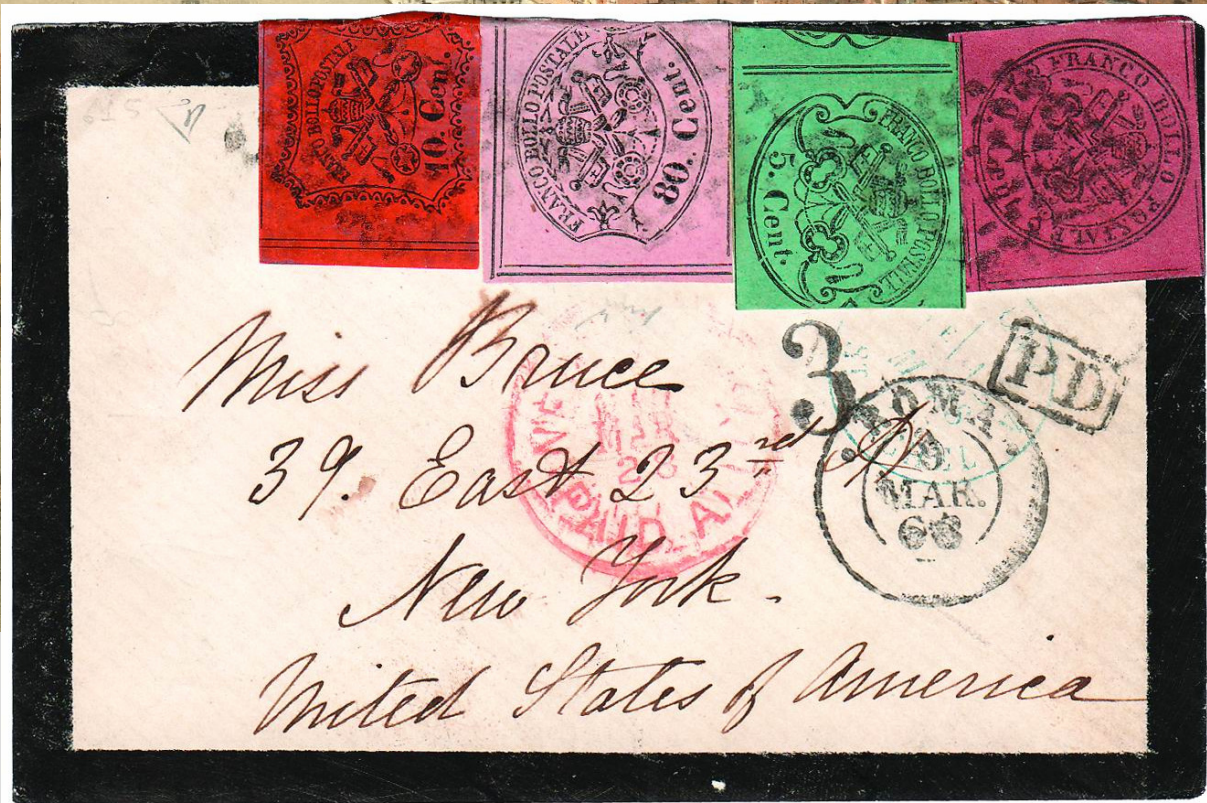 FRANCO BOLLO POSTALE
10 Cent.
FRANCO BOLLO POSTALE
80 Cent.
FRANCO BOLLO POSTALE
5. Cent.
FRANCO BOLLO POSTALE
Miss Bruce
39. East 23rd St
New York.
United States of America
3
PD
ROMA
9
MAR.
68
PAID